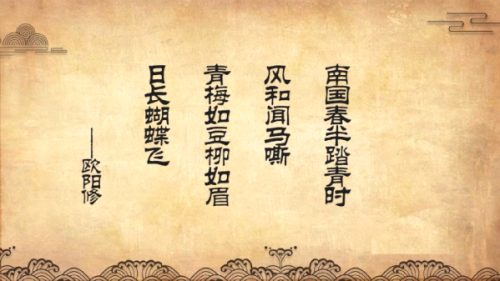 南国春半踏青时
风和闻马嘶
青梅如豆柳如眉
日长蝴蝶飞
——欧阳修